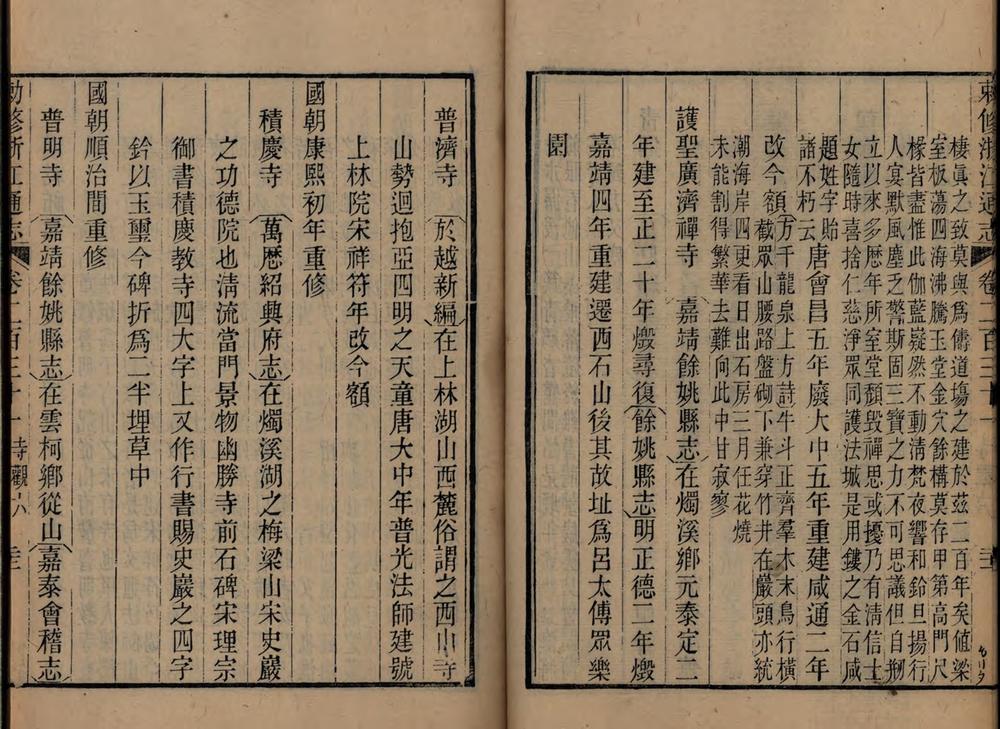 敕修浙江通志 卷二百三十一
棲眞之致莫與爲儔道塲之建於茲二百年矣値梁
室板蕩四海沸騰玉堂金穴餘構莫存甲第高門尺
椽皆盡惟此伽藍嶷然不動淸梵夜響和鈴旦揚行
人宴默風塵之警斯固三寶之力不可思議但自剏
立以來多歴年所室堂頽毀禪思或擾乃有淸信士
女隨時喜捨仁慈淨眾同護法城是用鏤之金石咸
題姓字貽
諸不朽云
唐會昌五年廢大中五年重建咸通二年
改今額
方千龍泉上方詩牛斗正齊羣木末鳥行橫
截眾山腰路盤砌下兼穿竹井在巖頭亦統
潮海岸四更看日出石房三月任花燒
未能割得繁華去難向此中甘寂寥
護聖廣濟禪寺 嘉靖餘姚縣志在燭溪鄉元泰定二
年建至正二十年燬尋復餘姚縣志明正德二年燬
嘉靖四年重建遷西石山後其故址爲呂太傅眾樂
園
普濟寺 於越新編在上林湖山西麓俗謂之西山寺
山勢迴抱亞四明之天童唐大中年普光法師建號
上林院宋祥符年改今額
國朝康熙初年重修
積慶寺 萬歴紹興府志在燭溪湖之梅梁山宋史巖
之功德院也淸流當門景物幽勝寺前石碑宋理宗
御書積慶教寺四大字上又作行書賜史巖之四字
鈐以玉璽今碑折爲二半埋草中
國朝順治間重修
普明寺 嘉靖餘姚縣志在雲柯鄉從山嘉泰會稽志
勅修浙江通志 卷二百三十一 寺觀六